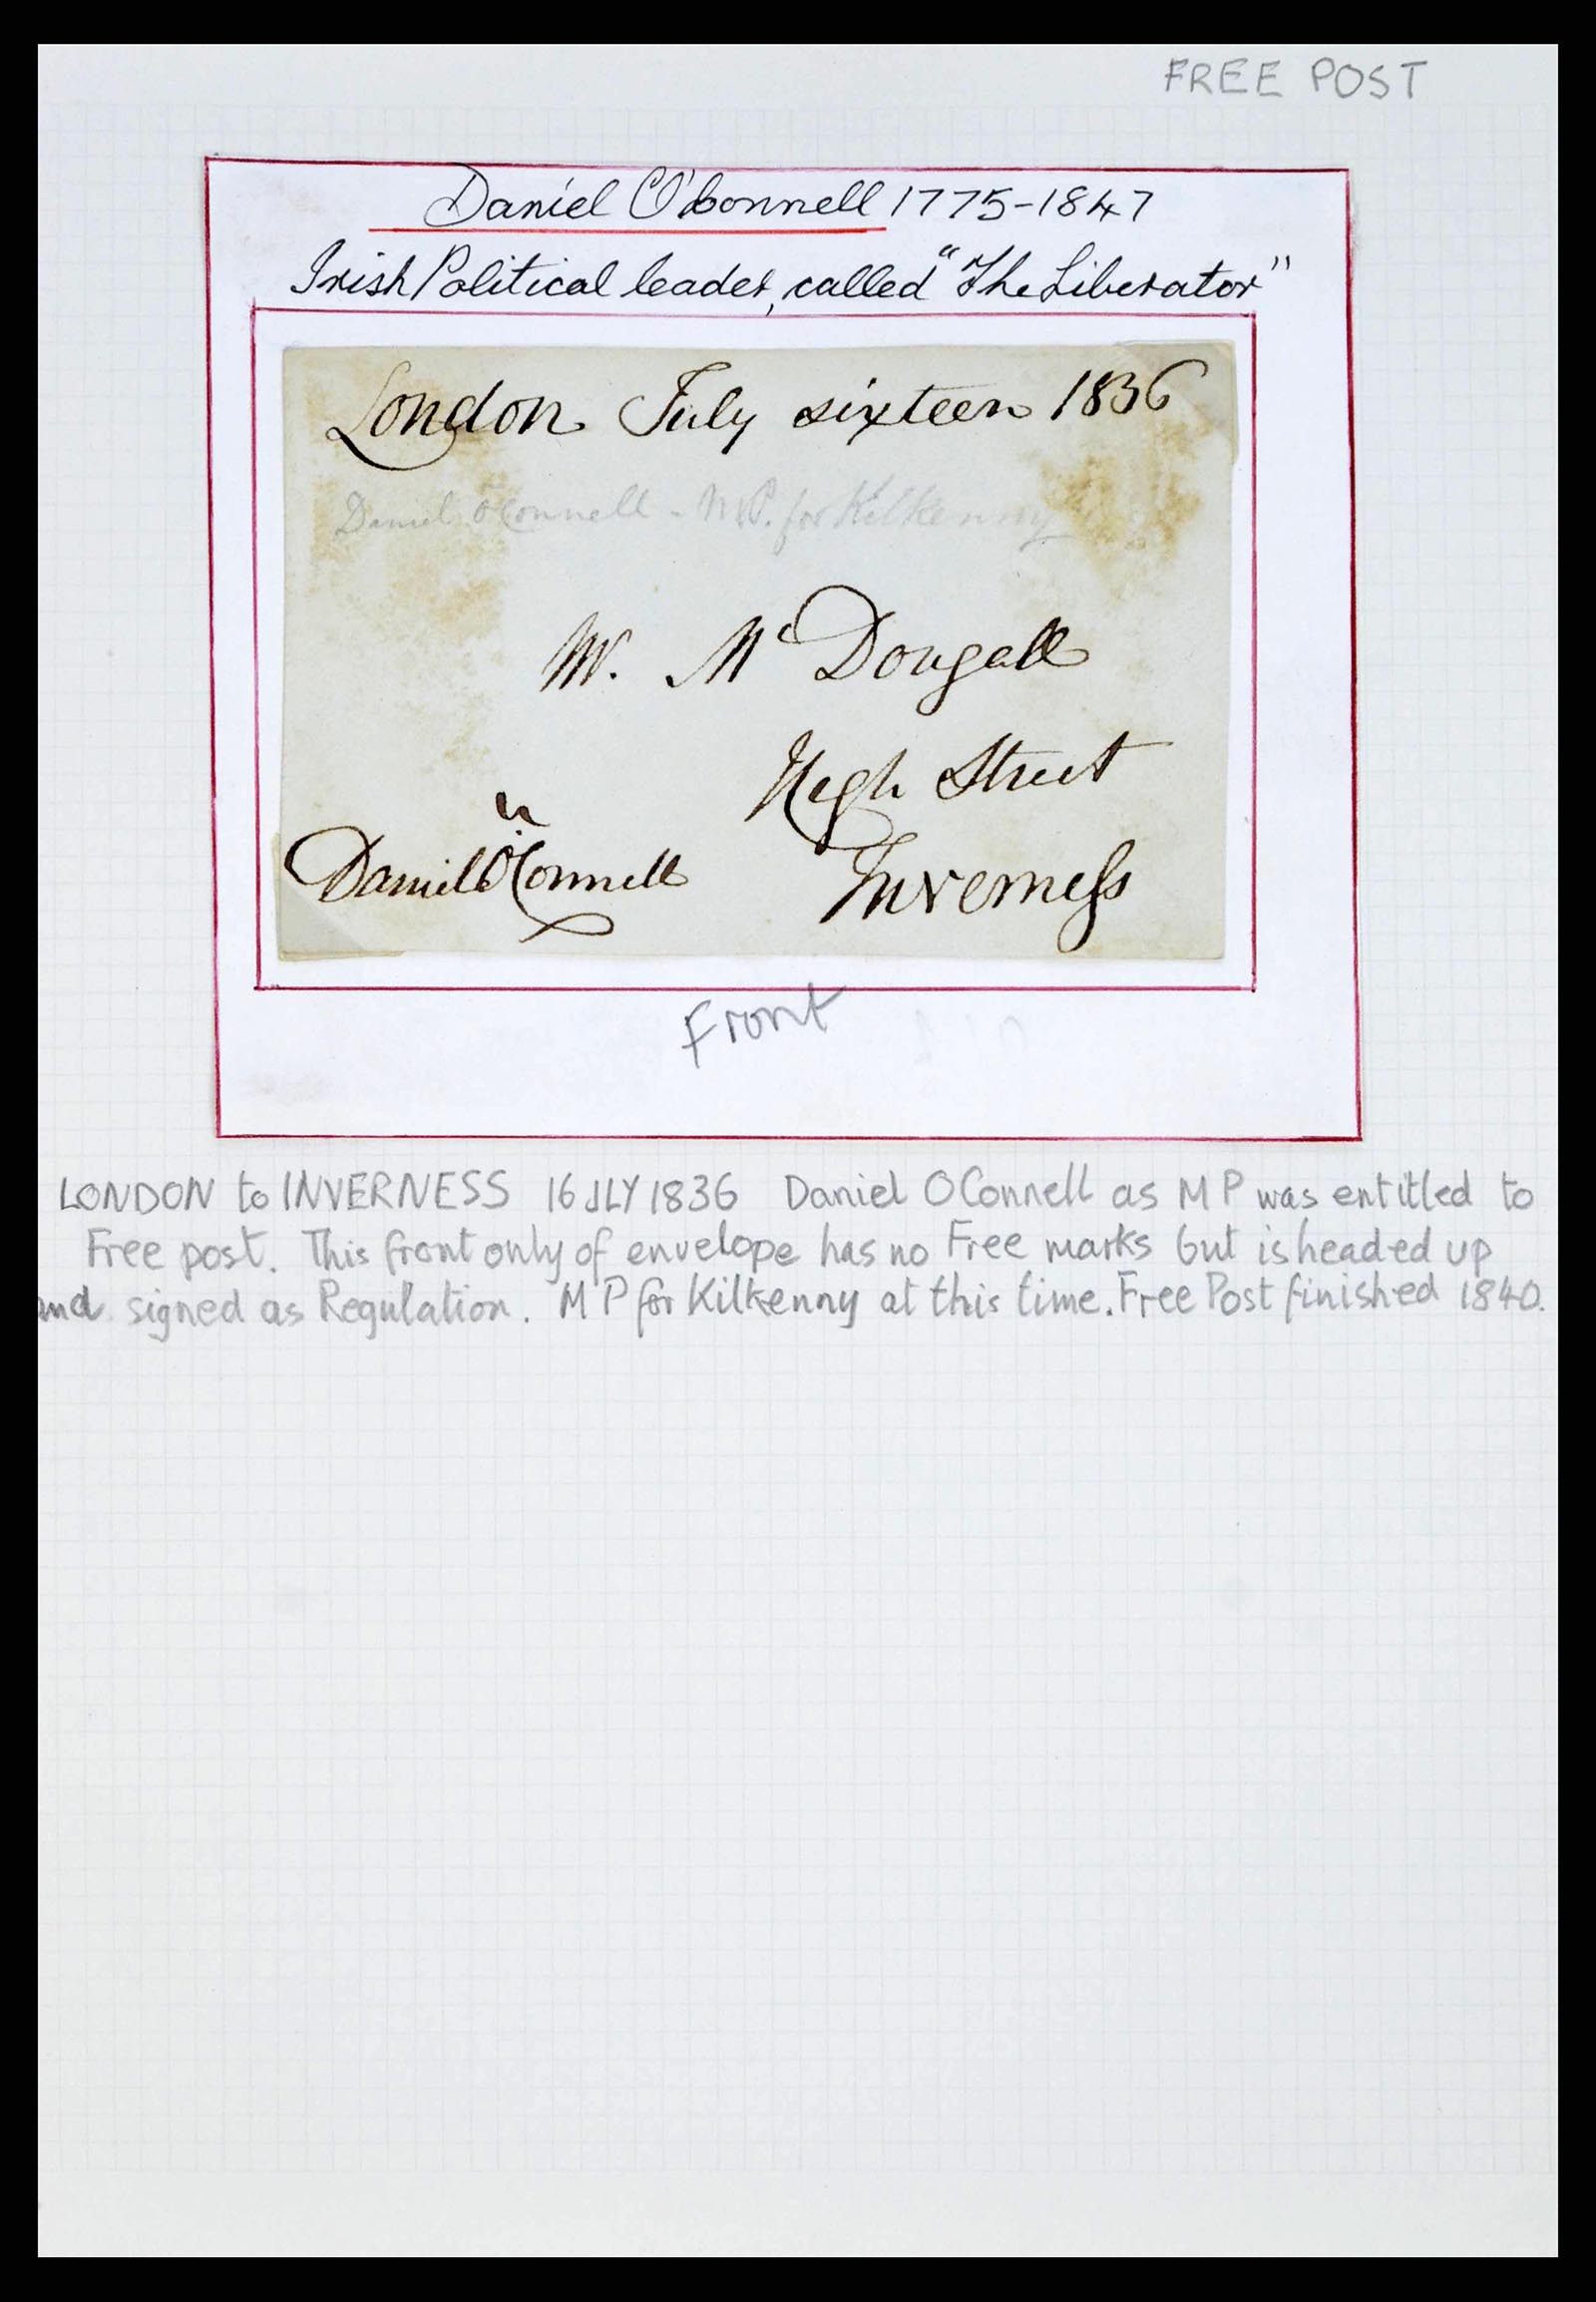 FREE POST
Daniel O'Connell 1775-1847
Irish Political leader, called "The Liberator"
London July sixteen 1836
Daniel O'Connell - M.P. for Kilkenny
W. McDougall
High Street
Inverness
Daniel O'Connell
Front
LONDON to INVERNESS 16 JLY 1836 Daniel OConnell as M P was entitled to
Free post. This front only of envelope has no Free marks but is headed up
and signed as Regulation. M P for Kilkenny at this time. Free Post finished 1840.